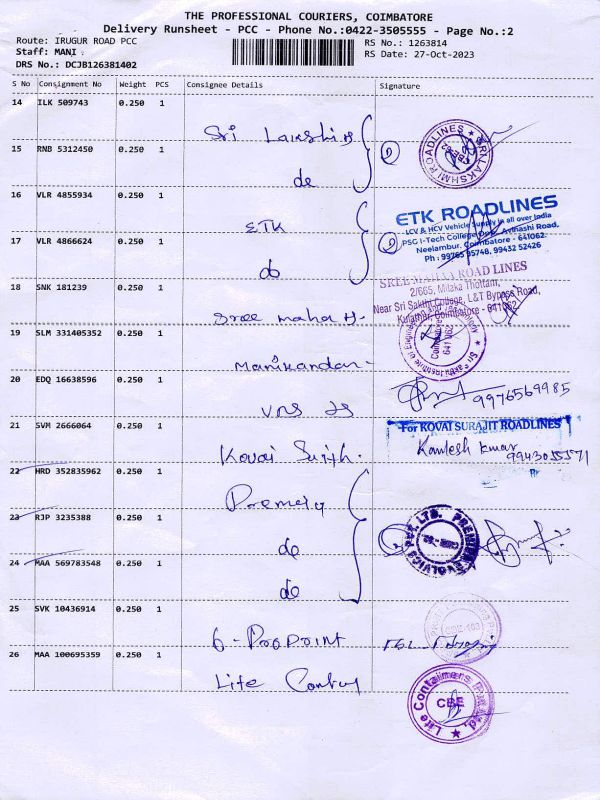 THE PROFESSIONAL COURIERS, COIMBATORE
Delivery Runsheet - PCC - Phone No.:0422-3505555 - Page No.:2
Route: IRUGUR ROAD PCC
RS No.: 1263814
Staff: MANI
RS Date: 27-Oct-2023
DRS No.: DCJB126381402
S No Consignment No Weight PCS Consignee Details Signature
14 ILK 509743 0.250 1
Sri Lakshmi
SRI LAKSHMI ROADLINES
15 RNB 5312450 0.250 1
do
16 VLR 4855934 0.250 1
ETK
ETK ROADLINES
LCV & HCV Vehicle Supply in all over India
PSG I-Tech College Opp, Avinashi Road,
Neelambur, Coimbatore - 641062.
Ph : 99765 95748, 99432 52426
17 VLR 4866624 0.250 1
do
18 SNK 181239 0.250 1
Sree maha
SREE MAHAA ROAD LINES
2/665, Milaka Thottam,
Near Sri Sakthi College, L&T Bypass Road,
Coimbatore - 641 062
19 SLM 331405352 0.250 1
Manikandan
Coimbatore
641 062
20 EDQ 16638596 0.250 1
VRS
9976569985
21 SVM 2666064 0.250 1
Kovai Surjth.
For KOVAI SURAJIT ROADLINES
Kamlesh kumar
22 HRD 352835962 0.250 1
23 RJP 3235388 0.250 1
do
24 MAA 569783548 0.250 1
do
25 SVK 10436914 0.250 1
26 MAA 100695359 0.250 1
Lite
Lite Containers (P) Ltd.
CBE